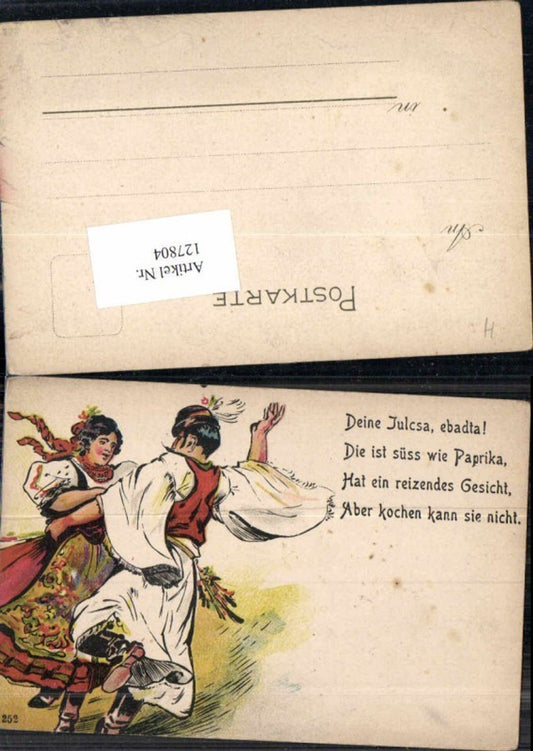 in
An
Artikel Nr.
127804
POSTKARTE
H
Deine Julcsa, ebadta!
Die ist süss wie Paprika,
Hat ein reizendes Gesicht,
Aber kochen kann sie nicht.
252